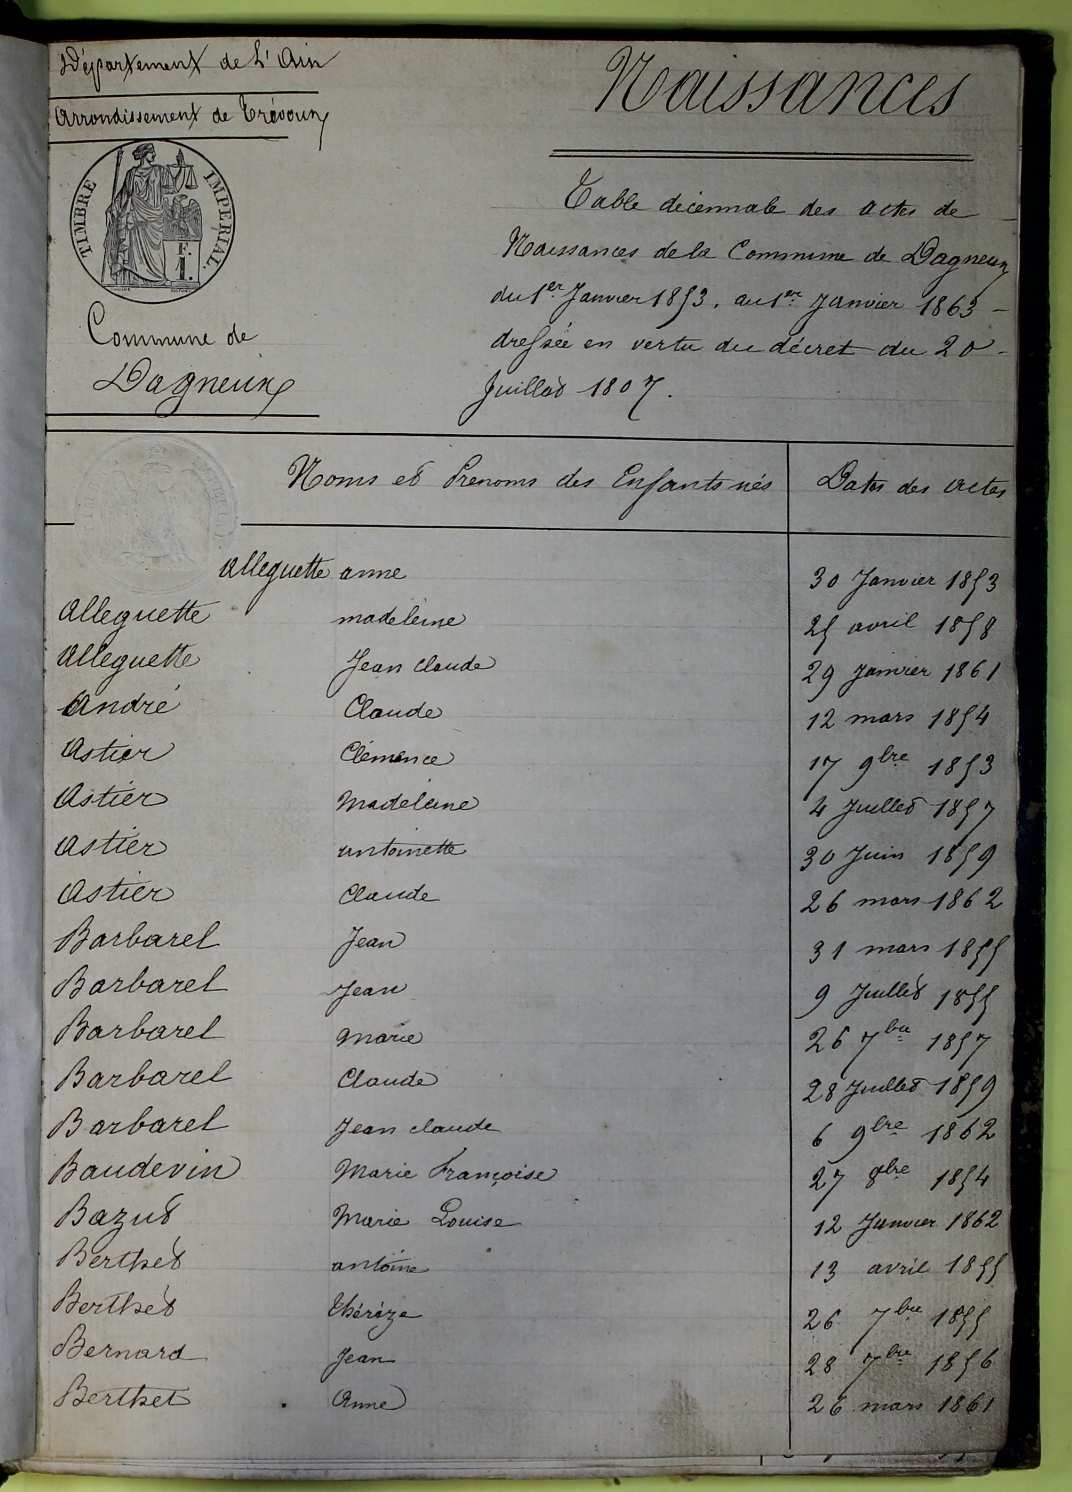 Département de L'Ain
Arrondissement de Trévoux
TIMBRE IMPERIAL.
F.
1.
Commune de
Dagneux
Naissances
Table décennale des actes de
Naissances de la Commune de Dagneux
du 1er Janvier 1853, au 1er Janvier 1863
dressée en vertu du décret du 20
Juillet 1807.
Noms et Prenoms des Enfants nés Dates des actes
Alleguette anne 30 Janvier 1853
Alleguette madeleine 25 avril 1858
Alleguette Jean Claude 29 Janvier 1861
André Claude 12 mars 1854
Astier Clémence 17 9bre 1853
Astier Madeleine 4 Juillet 1857
Astier antoinette 30 Juin 1859
Astier Claude 26 mars 1862
Barbarel Jean 31 mars 1855
Barbarel Jean 9 Juillet 1855
Barbarel Marie 26 7bre 1857
Barbarel Claude 28 Juillet 1859
Barbarel Jean claude 6 9bre 1862
Baudevin Marie Françoise 27 8bre 1854
Bazut Marie Louise 12 Janvier 1862
Berthet antoine 13 avril 1855
Berthet thérèze 26 7bre 1855
Bernard Jean 28 7bre 1856
Berthet Anne 26 mars 1861